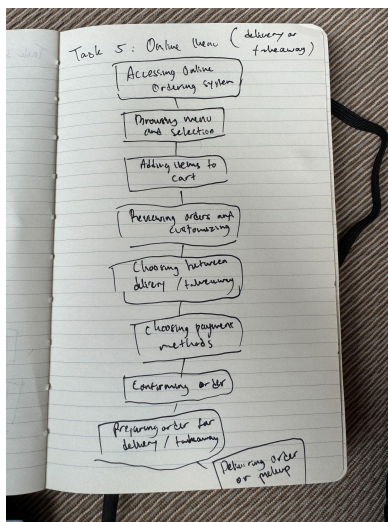 Task 5: Online Menu (delivery or
takeaway)
Accessing Online
Ordering system
Browsing menu
and selection
Adding items to
cart
Reviewing orders and
customizing
Choosing between
delivery / takeaway
Choosing payment
methods
Confirming order
Preparing order for
delivery / takeaway
Delivering order
or pickup